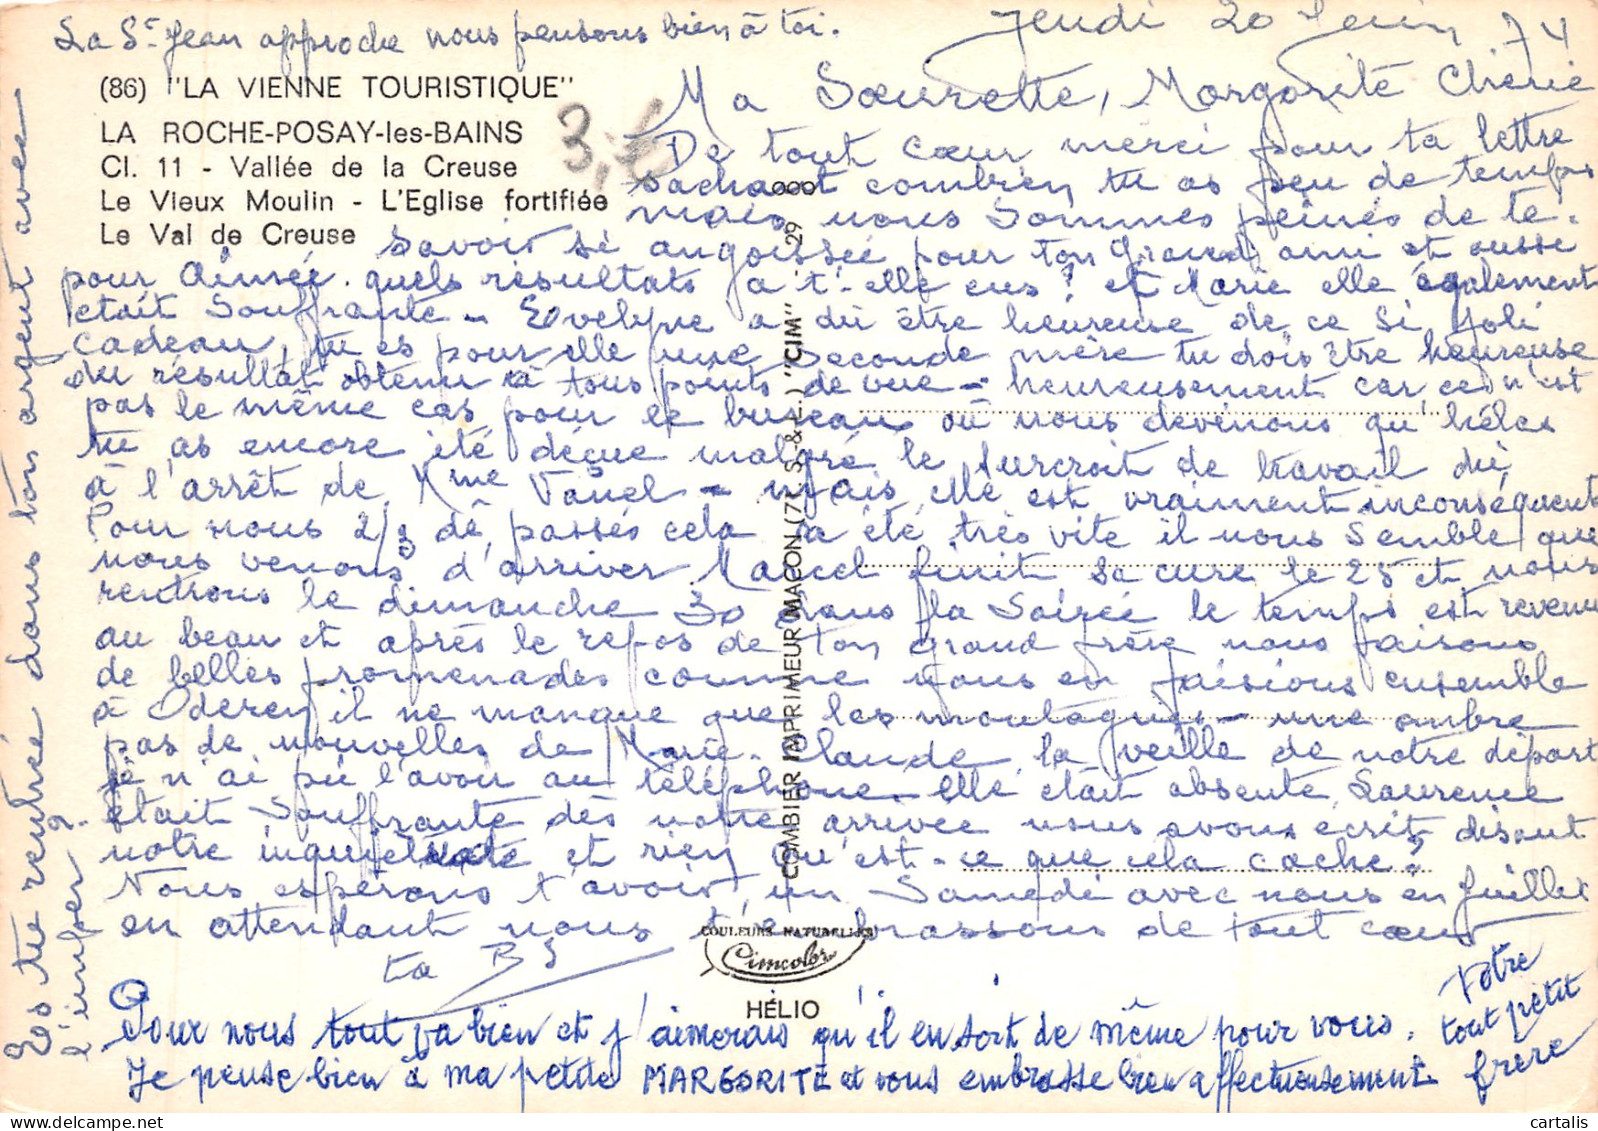 La St. Jean approche nous pensons bien à toi.
Jeudi 20 Juin 74
(86) "LA VIENNE TOURISTIQUE"
LA ROCHE-POSAY-les-BAINS
Cl. 11 - Vallée de la Creuse
Le Vieux Moulin - L'Eglise fortifiée
Le Val de Creuse
Ma Sœurette, Morgorite Chérie
De tout cœur merci pour ta lettre
sachant combien tu as peu de temps
mais nous sommes peinés de te
savoir si angoissée pour ton Grand ami et aussi
pour Aimée. quels résultats a t'-elle eus ? et Marie elle également
était Souffrante - Evelyne a dû être heureuse de ce si joli
cadeau, tu es pour elle une seconde mère tu dois être heureuse
du résultat obtenu à tous points de vue - heureusement car ce n'est
pas le même cas pour le bureau où nous devinons qu'hélas
tu as encore été déçue malgré le surcroit de travail dû
à l'arrêt de Mme - Mais elle est vraiment inconséquente
Pour nous 2/3 de passés cela a été très vite il nous semble que
nous venons d'arriver Marcel finit sa cure le 25 et nous
rentrons le dimanche 30 dans la Soirée le temps est revenu
au beau et après le repos de ton grand frère nous faisons
de belles promenades comme nous en faisions ensemble
à Oderen il ne manque que les montagnes - une ombre
pas de nouvelles de Marie-Claude la veille de notre départ
je n'ai pû l'avoir au téléphone - elle était absente, Laurence
était Souffrante dès notre arrivée nous avons écrit disant
notre inquiétude et rien qu'est-ce que cela cache ?
Nous espérons t'avoir un Samedi avec nous en Juillet
en attendant nous t'embrassons de tout cœur
ta BS
Es tu rentrée dans ton argent avec
l'imper ?
COMBIER IMPRIMEUR MACON (71. S.-&-L.) "CIM" 29 000
COULEURS NATURELLES
Cimcolor
HÉLIO
3,50
Pour nous tout va bien et j'aimerais qu'il en sort de même pour vous.
Je pense bien à ma petite MARGORITE et vous embrasse bien affectueusement
Votre
tout petit
frère
cartalis.com